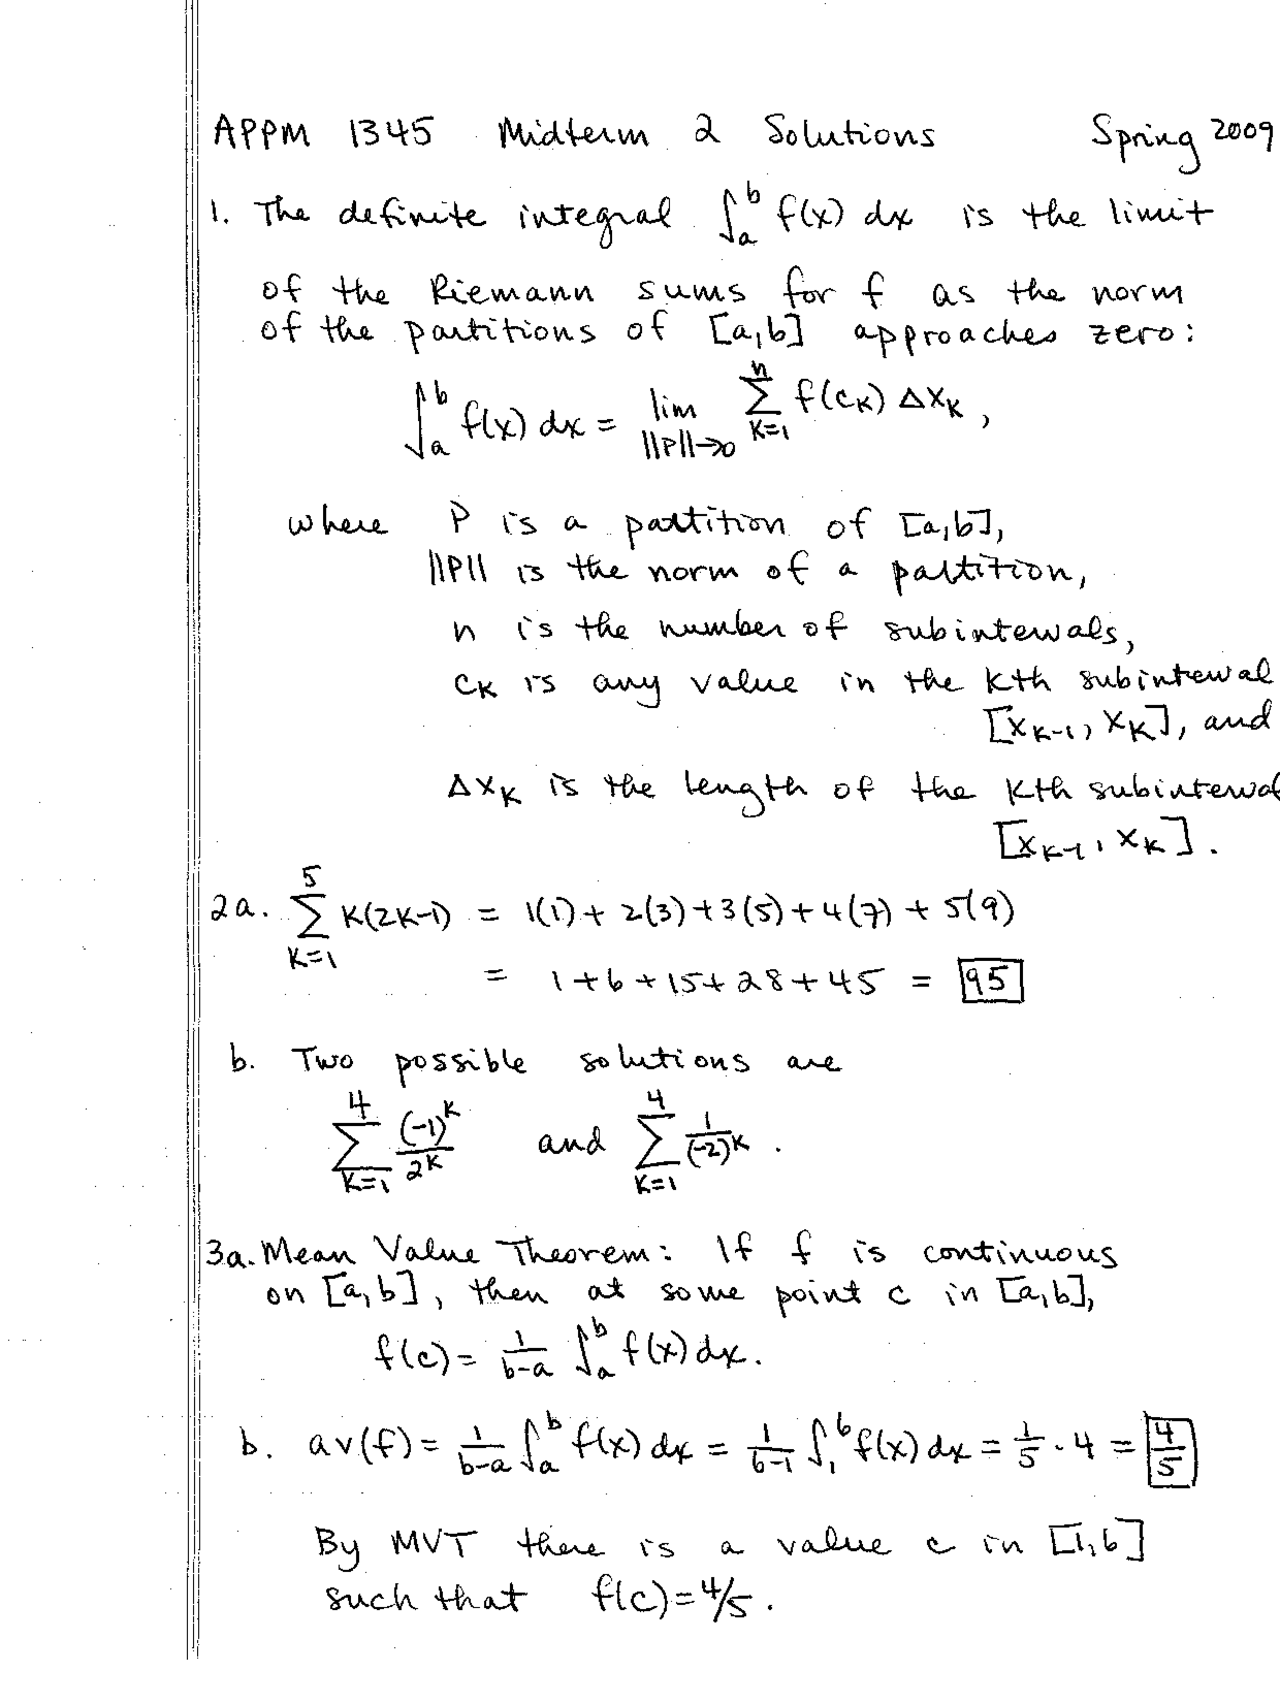 APPM 1345 Midterm 2 Solutions Spring 2009
1. The definite integral ∫_a^b f(x) dx is the limit
of the Riemann sums for f as the norm
of the partitions of [a,b] approaches zero:
∫_a^b f(x) dx = lim_{||P||→0} Σ_{K=1}^n f(c_K) Δx_K,
where P is a partition of [a,b],
||P|| is the norm of a partition,
n is the number of subintervals,
c_K is any value in the Kth subinterval
[x_{K-1}, x_K], and
Δx_K is the length of the Kth subinterval
[x_{K-1}, x_K].
2a. Σ_{K=1}^5 K(2K-1) = 1(1) + 2(3) + 3(5) + 4(7) + 5(9)
= 1 + 6 + 15 + 28 + 45 = 95
b. Two possible solutions are
Σ_{K=1}^4 (-1)^K/2^K and Σ_{K=1}^4 1/(-2)^K.
3a. Mean Value Theorem: If f is continuous
on [a,b], then at some point c in [a,b],
f(c) = 1/(b-a) ∫_a^b f(x) dx.
b. av(f) = 1/(b-a) ∫_a^b f(x) dx = 1/(6-1) ∫_1^6 f(x) dx = 1/5 · 4 = 4/5
By MVT there is a value c in [1,6]
such that f(c) = 4/5.